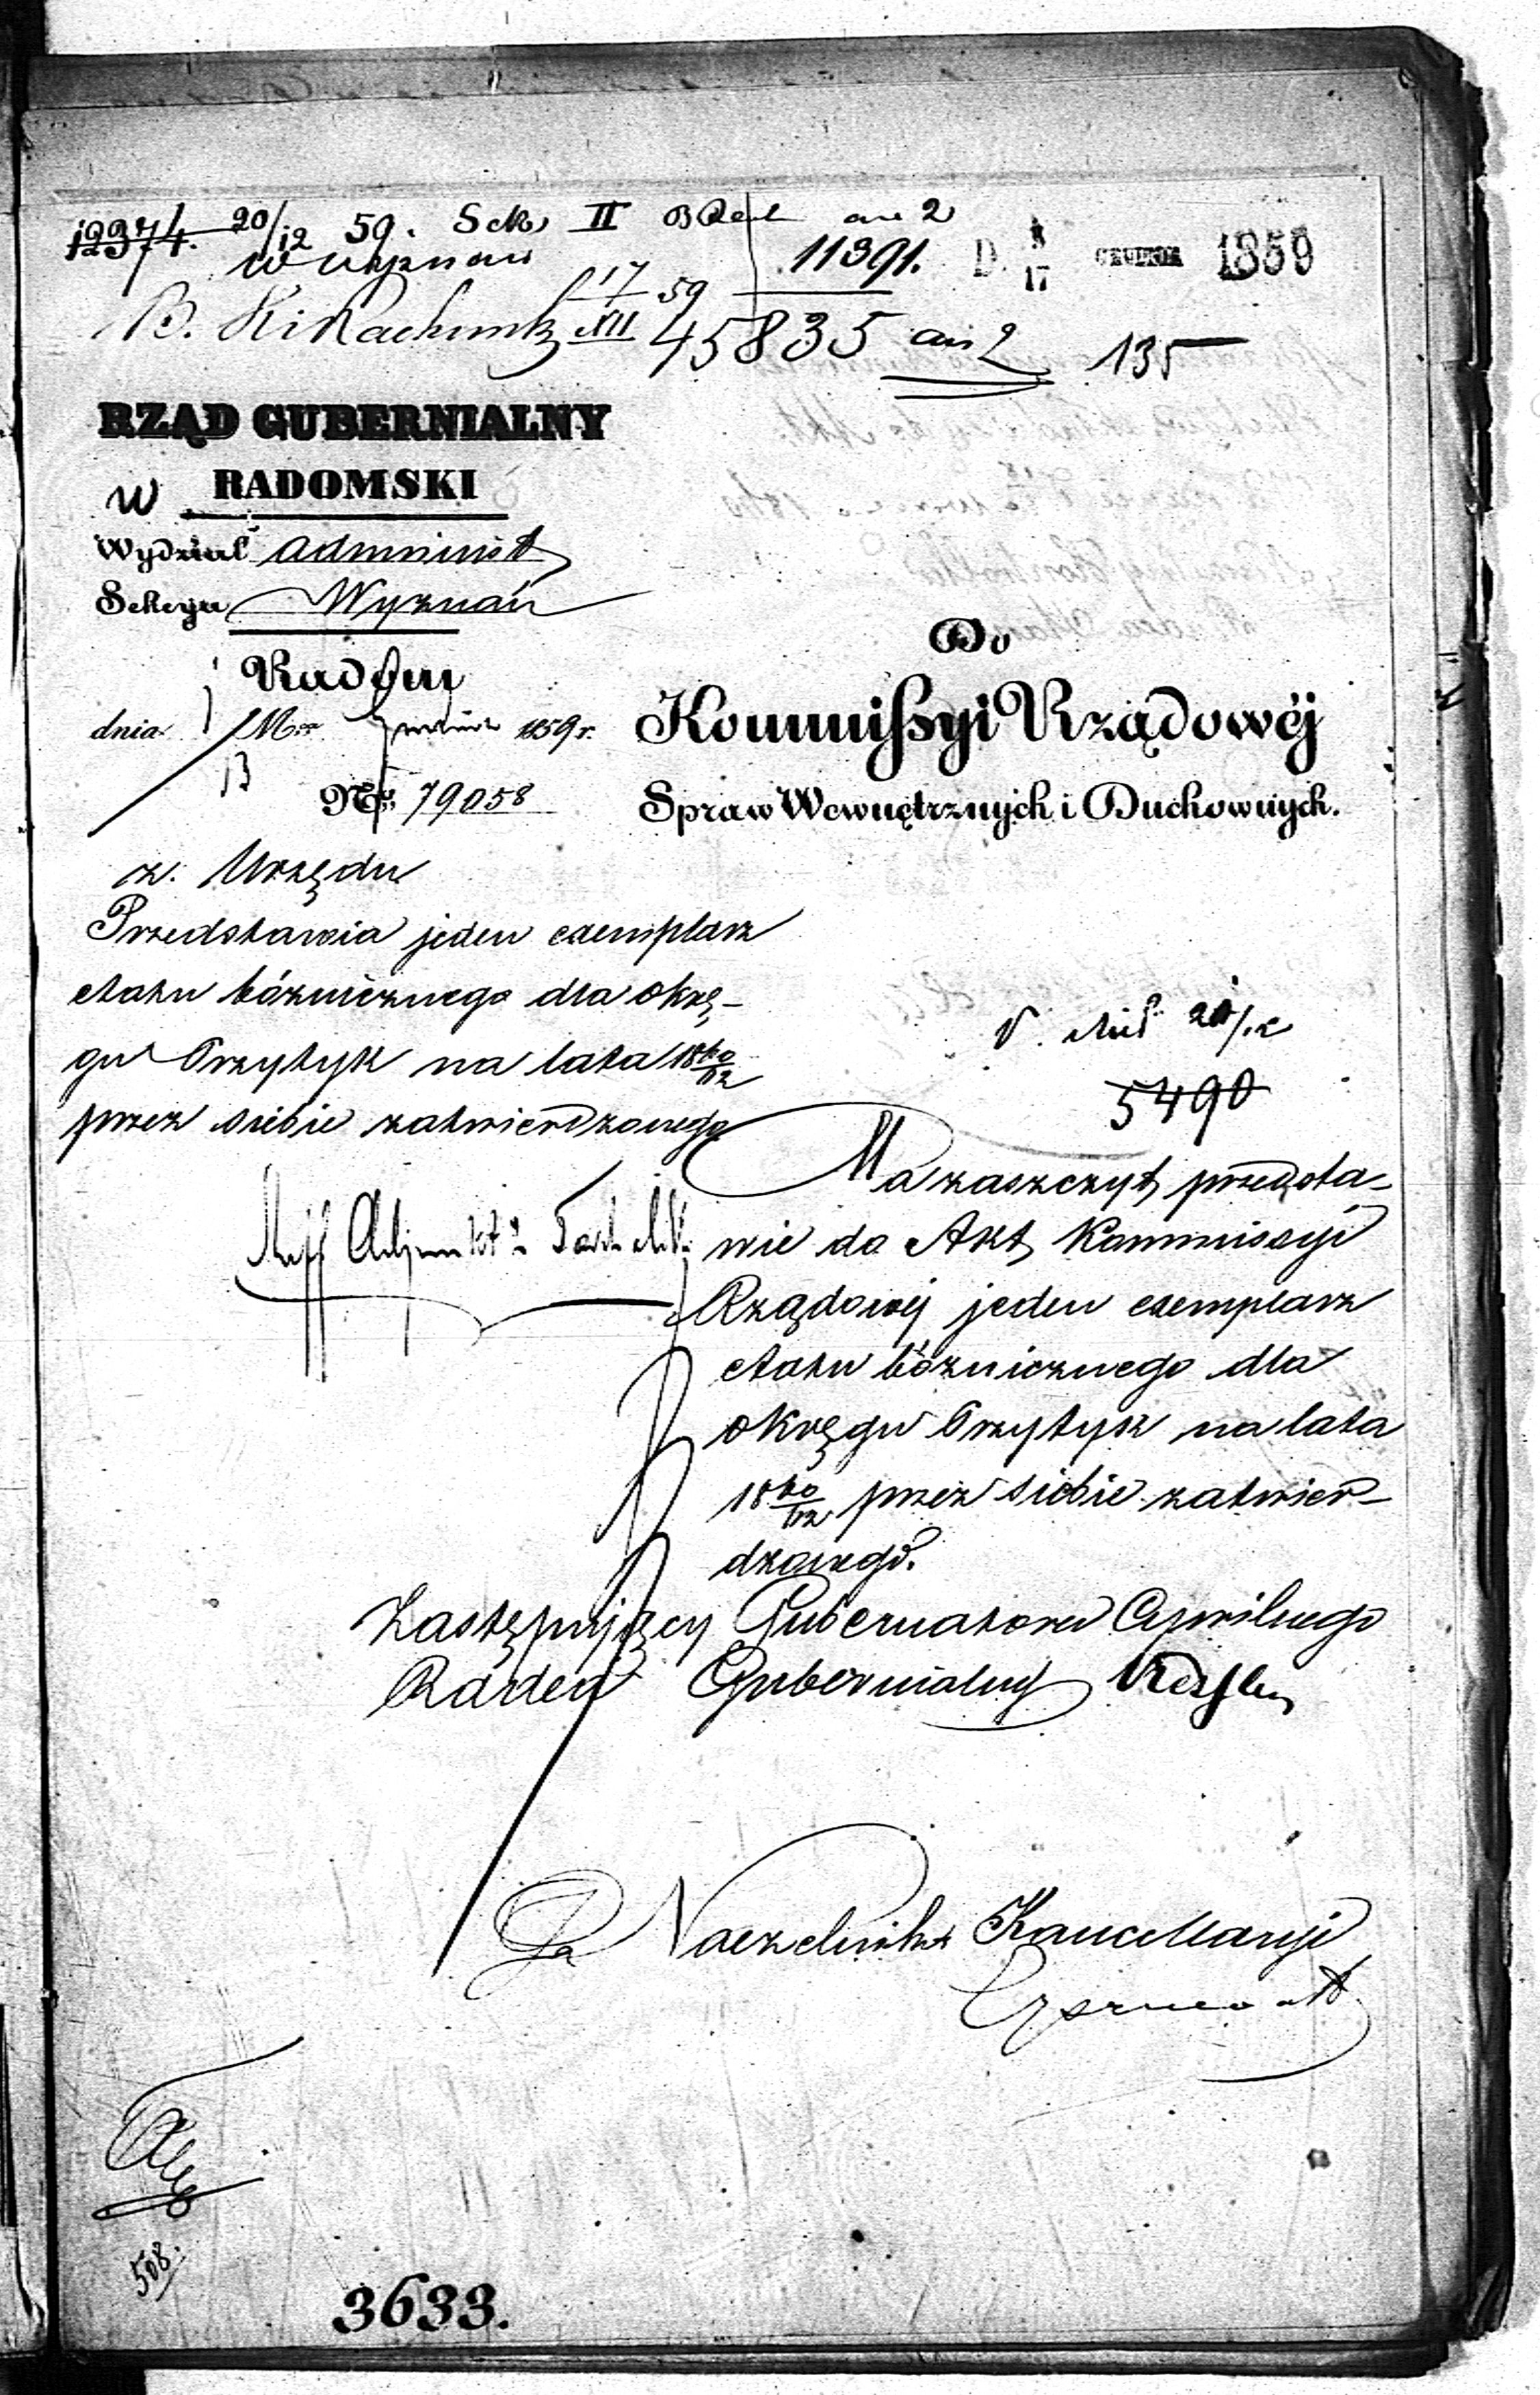 12374. 20/12 59. Sek. II
11391. D. 5/17 GRUDNIA 1859
17/XII 59 45835 135
RZĄD GUBERNIALNY
RADOMSKI
w
Wydział Administ
Sekcya Wyznań
Radom
dnia 1/13 1859 r.
Nr. 79058
Do
Kommissyi Rządowéj
Spraw Wewnętrznych i Duchownych.
z Urzędu
Przedstawia jeden exemplarz
etatu bóżnicznego dla okrę-
gu Przytyk na lata 18 60/62
przez siebie zatwierdzonego
20/12
5490
Ma zaszczyt przedsta-
wić do Akt Kommissyi
Rządowéj jeden exemplarz
etatu bóżnicznego dla
okręgu Przytyk na lata
18 60/62 przez siebie zatwier-
dzonego.
Zastępujący Gubernatora Cywilnego
Radca Gubernialny
Za Naczelnika Kancellaryi
508.
3633.